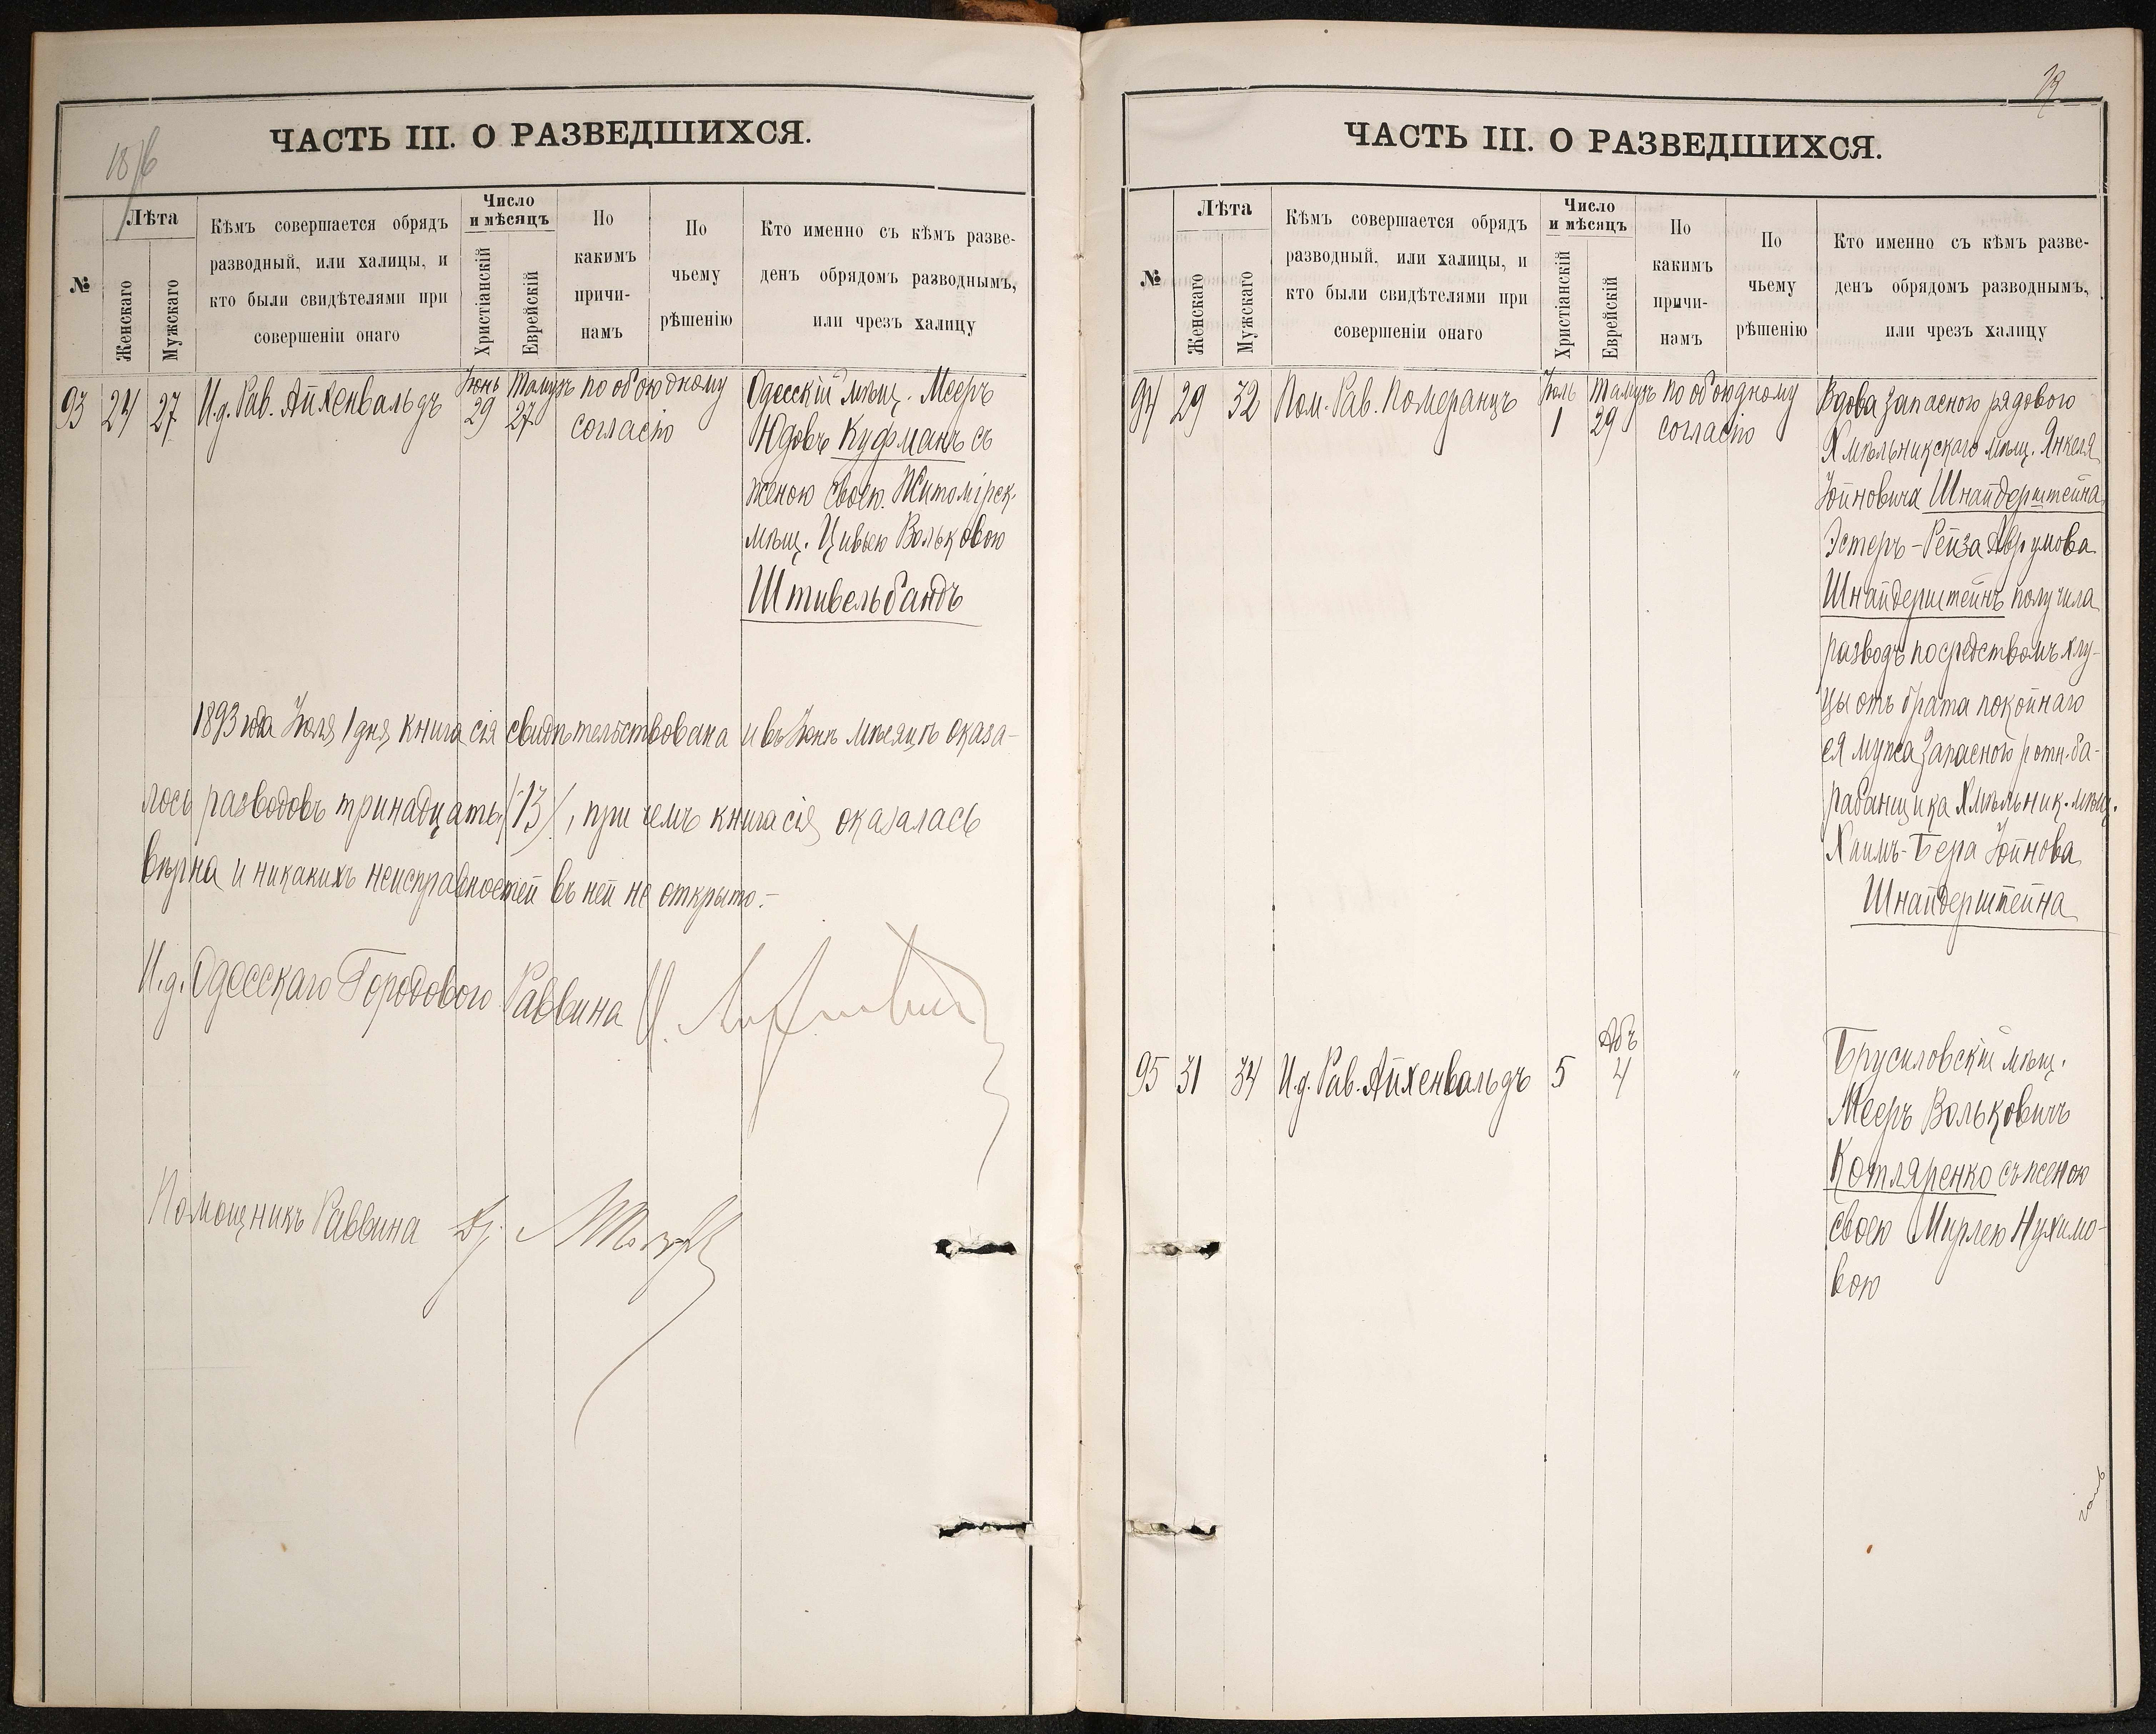 18/6
ЧАСТЬ III. О РАЗВЕДШИХСЯ.
№
Лѣта
Женскаго
Мужскаго
Кѣмъ совершается обрядъ
разводный, или халицы, и
кто были свидѣтелями при
совершеніи онаго
Число
и мѣсяцъ
Христіанскій
Еврейскій
По
какимъ
причи-
намъ
По
чьему
рѣшенію
Кто именно съ кѣмъ разве-
денъ обрядомъ разводнымъ,
или чрезъ халицу
93 24 27 И.д. Рав. Айхенвальдъ
Іюнь
29
Тамузъ
27
по обоюдному
согласію
Одесскій мѣщ. Мееръ
Юдовъ Куфманъ съ
женою своею Житомірск.
мѣщ. Цивьею Вольковою
Штивельбандъ
1893 года Іюля 1 дня, книга сія свидѣтельствована и въ Іюнѣ мѣсяцѣ оказа-
лось разводовъ тринадцать /13/, при чемъ книга сія оказалась
вѣрна и никакихъ неисправностей въ ней не открыто.-
И.д. Одесскаго Городового Раввина
Помощникъ Раввина
ЧАСТЬ III. О РАЗВЕДШИХСЯ.
№
Лѣта
Женскаго
Мужскаго
Кѣмъ совершается обрядъ
разводный, или халицы, и
кто были свидѣтелями при
совершеніи онаго
Число
и мѣсяцъ
Христіанскій
Еврейскій
По
какимъ
причи-
намъ
По
чьему
рѣшенію
Кто именно съ кѣмъ разве-
денъ обрядомъ разводнымъ,
или чрезъ халицу
94 29 32 Пом. Рав. Померанцъ
Іюль
1
Тамузъ
29
по обоюдному
согласію
Вдова запасного рядового
Хмѣльникскаго мѣщ. Янкеля
Іойновича Шнайдерштейна
Эстеръ-Рейза Аврумова
Шнайдерштейнъ получила
разводъ посредствомъ хлу-
цы отъ брата покойнаго
ея мужа запасного ротн. ба-
рабанщика Хмѣльник. мѣщ.
Хаимъ-Бера Іойнова
Шнайдерштейна
95 31 34 И.д. Рав. Айхенвальдъ 5
Абъ
4
"
Брусиловскій мѣщ.
Мееръ Вольковичъ
Котляренко съ женою
своею Мирлею Нухимо-
вою